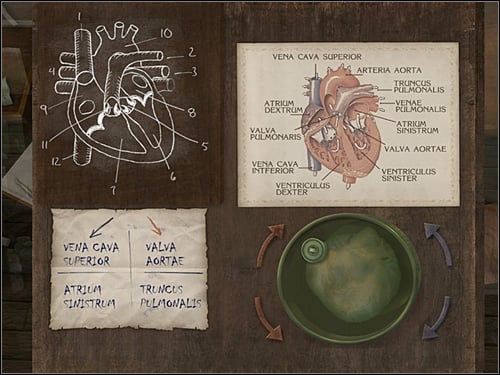 1
10
2
4
3
9
8
11
5
12
7
6
VENA CAVA SUPERIOR
ARTERIA AORTA
TRUNCUS
PULMONALIS
VENAE
PULMONALIS
ATRIUM
DEXTRUM
ATRIUM
SINISTRUM
VALVA
PULMONARIS
VALVA AORTAE
VENA CAVA
INTFERIOR
VENTRICULUS
SINISTER
VENTRICULUS
DEXTER
VENA CAVA
SUPERIOR
VALVA
AORTAE
ATRIUM
SINISTRUM
TRUNCUS
PULMONALIS